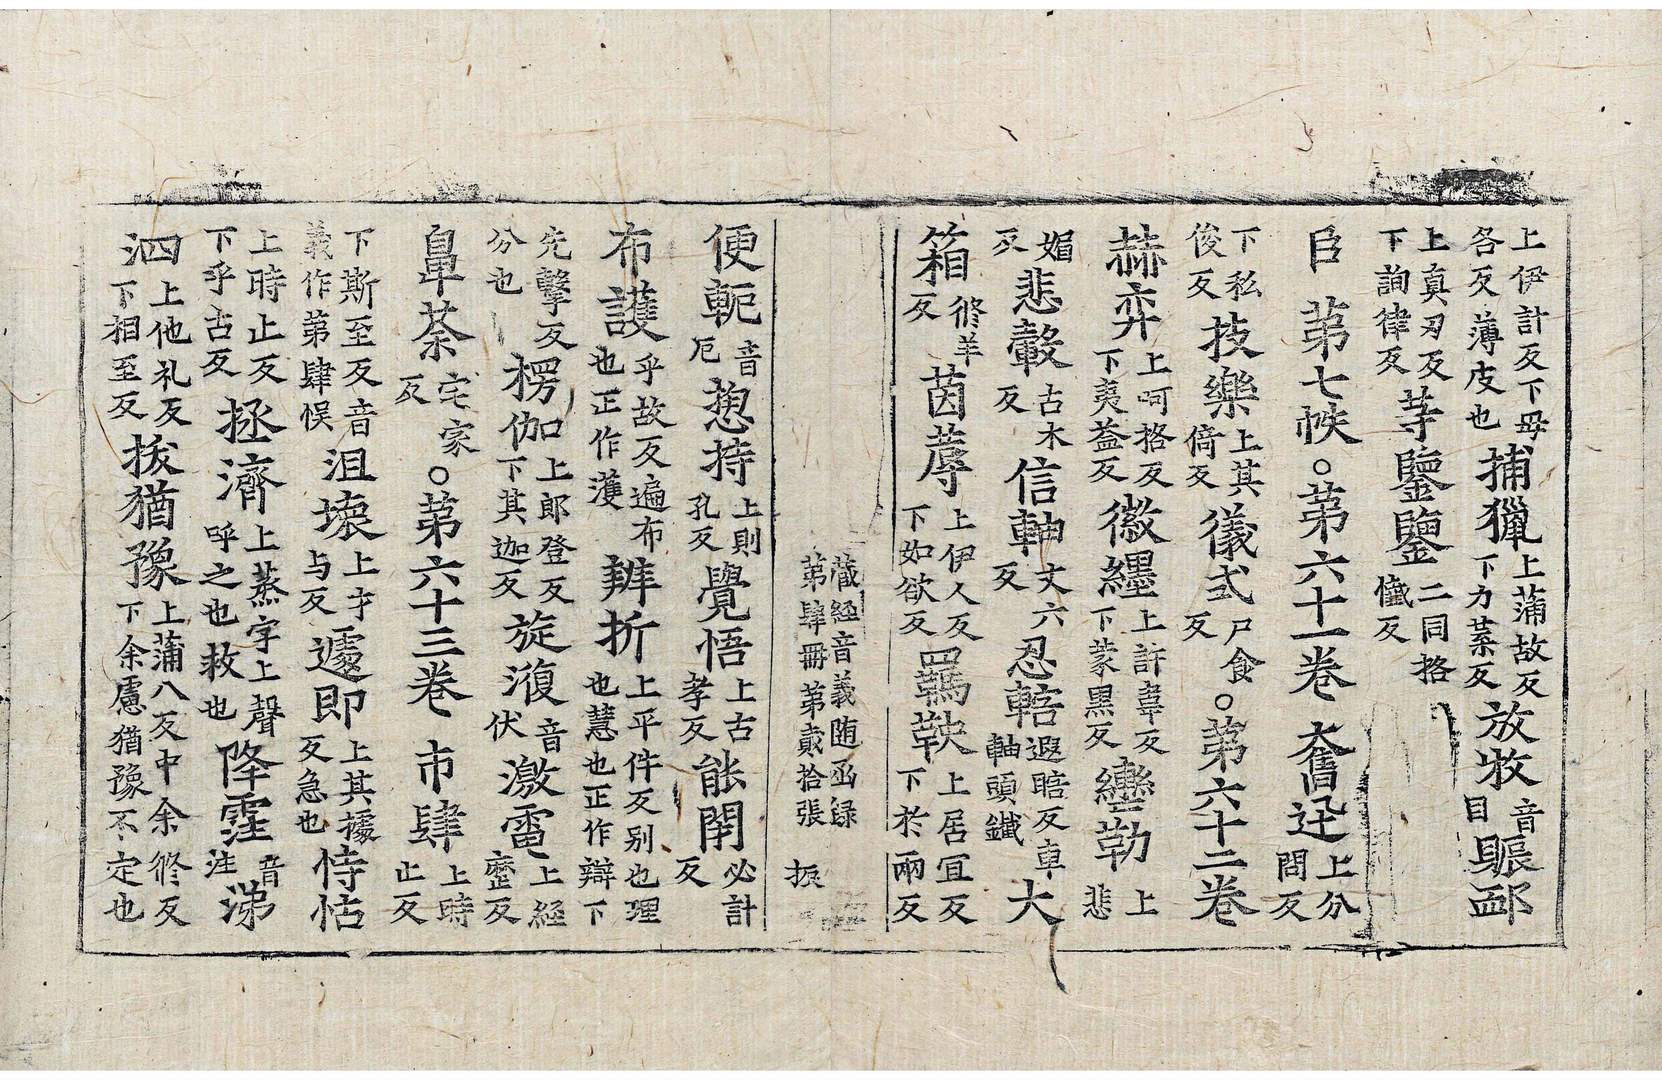 上伊計反下毋各反薄皮也捕獵上蒲故反下力葉反放牧音目賑䘏
上真刃反下詢律反䓁鑒鑒二同格懺反
𦣝 苐七帙○苐六十一卷 奮迅上分問反
下私俊反技樂上其倚反儀式尸食反○苐六十二卷
赫弈上呵挌反下夷益反徽纆上許韋反下蒙黒反轡勒上悲
媚反悲轂古木反信軸丈六反忍轄遐瞎反車軸頭鐵大
箱修羊反茵蓐上伊人反下如欲反羁鞅上居宜反下於兩反
藏經音義随函録
苐肆冊苐貳拾張 振
便軛音厄捴持上則孔反覺悟上古孝反能閇必計反
布護乎故反遍布也正作濩辨折上平件反别也理也慧也正作辯下
先擊反分也楞伽上郎登反下其迦反旋澓音伏激電上經歴反
臯荼宅家反○苐六十三卷 市肆上時止反
下斯至反音義作苐肆悮沮壊上才与反遽即上其據反急也恃怙
上時止反下乎古反拯濟上蒸字上聲呼之也救也降𩆂音注涕
泗上他礼反下相至反拔猶豫上蒲八反中余修反下余慮猶豫不定也